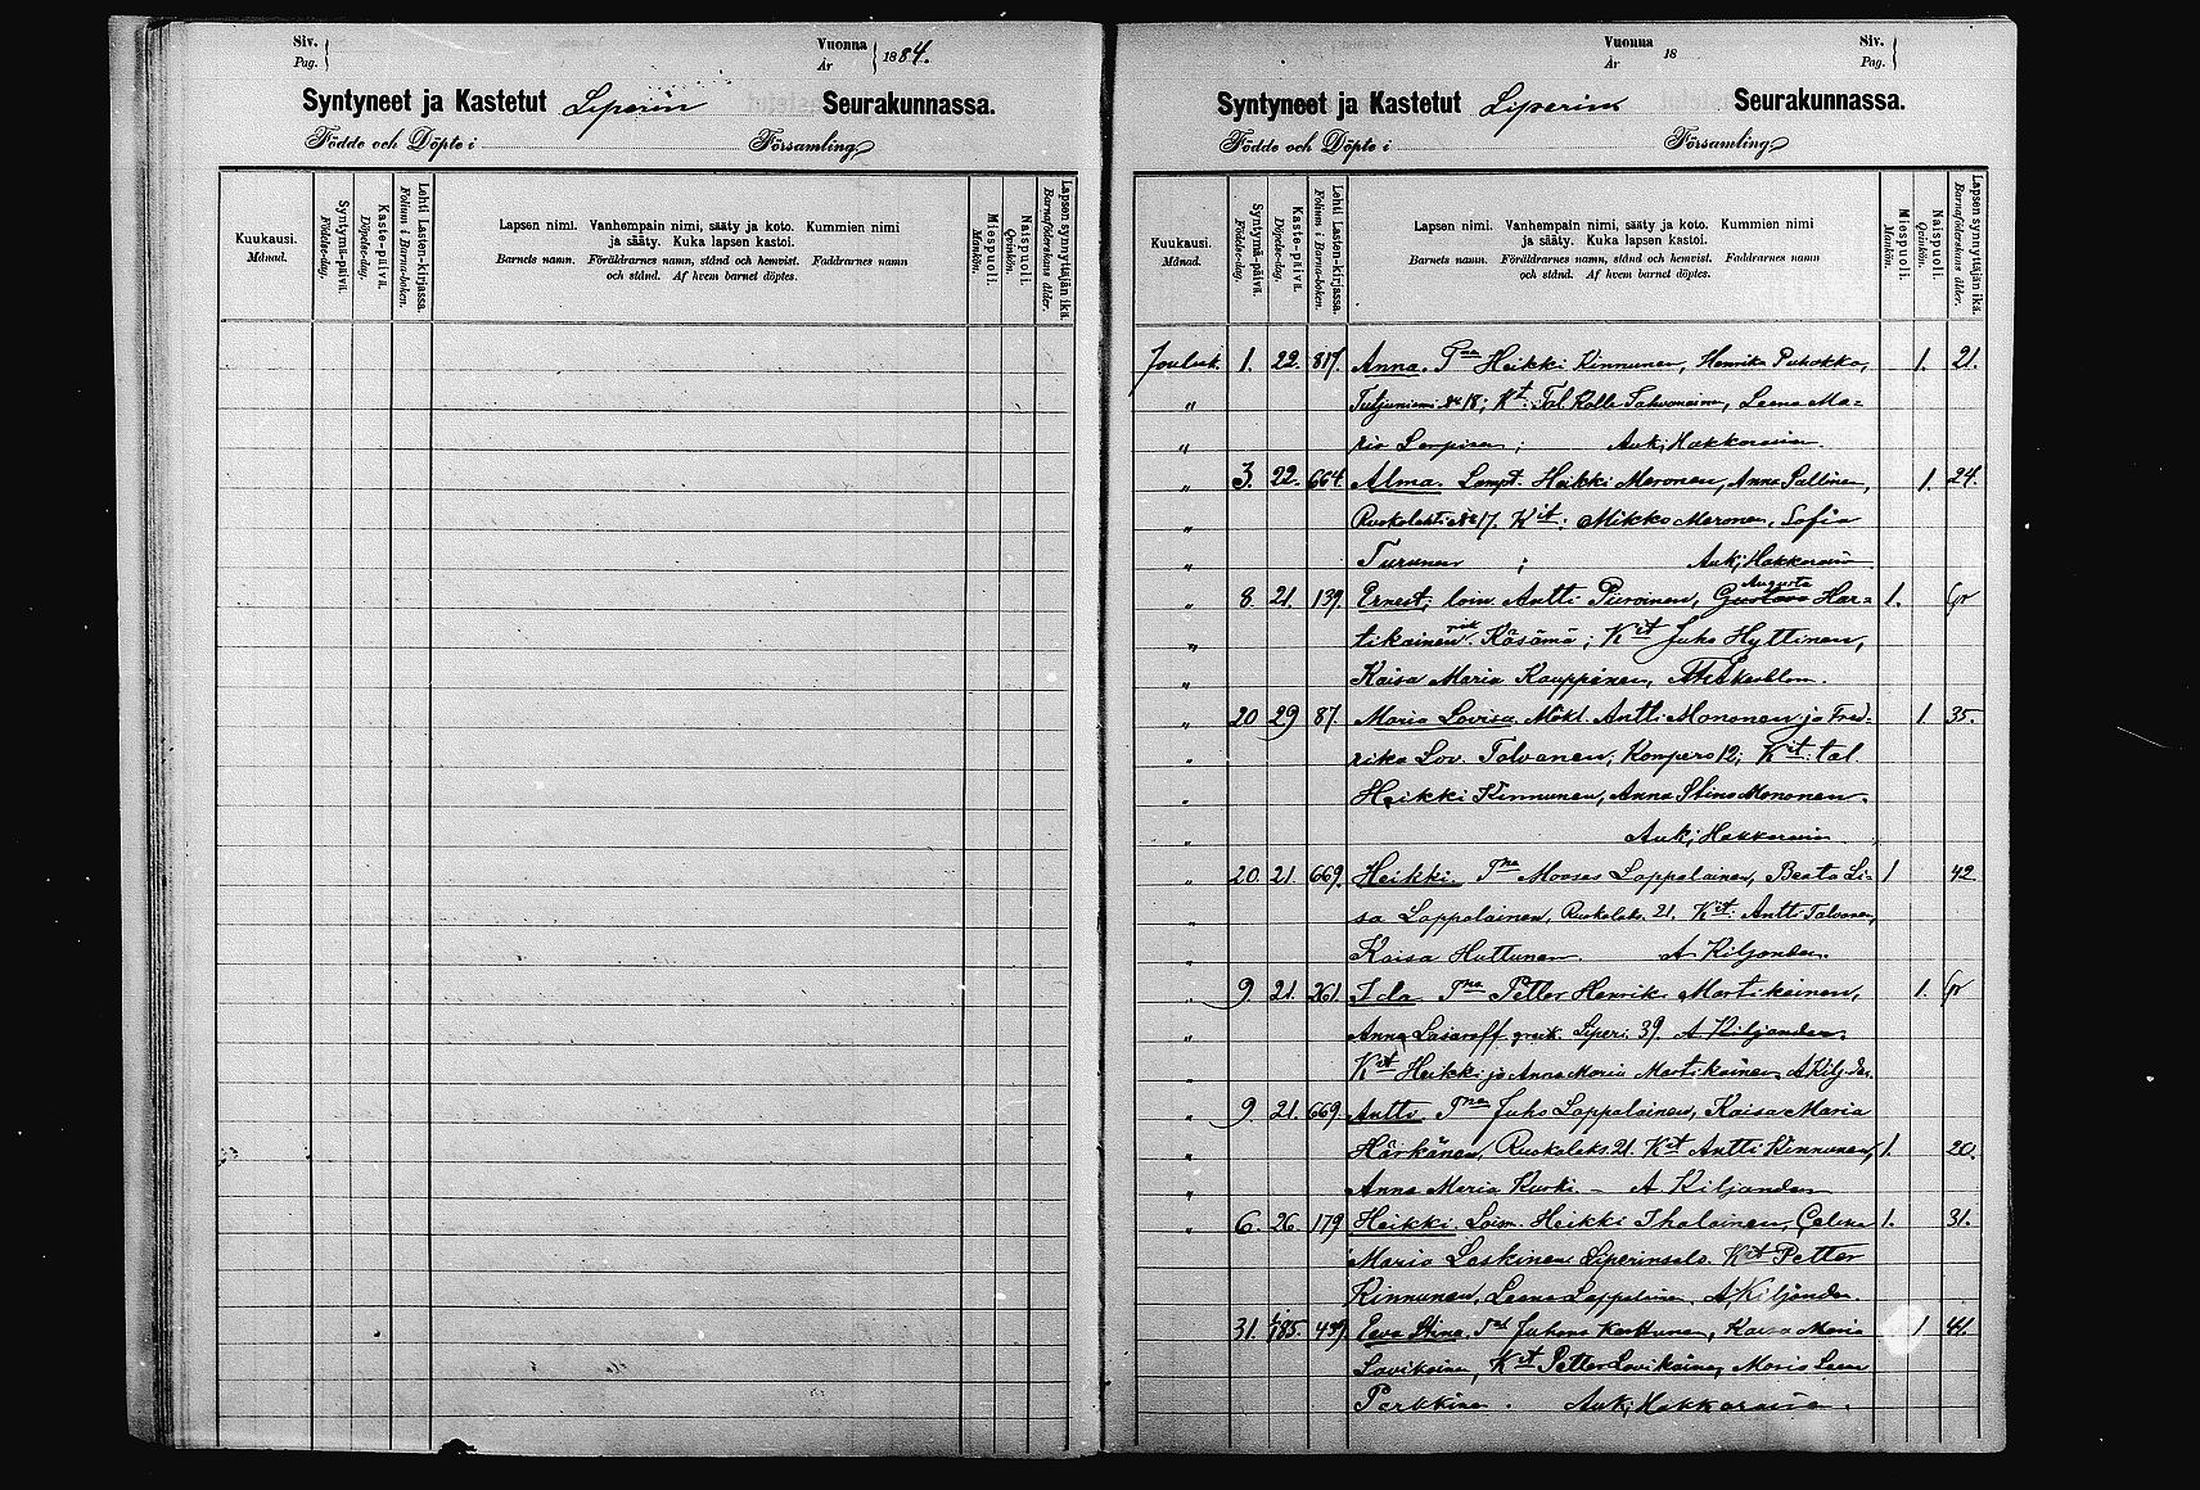 Siv. Pag.
Vuonna År 1884.
Syntyneet ja Kastetut Liperin Seurakunnassa.
Födde och Döpte i Församling
Kuukausi. Månad.
Syntymä-päivä. Födelse-dag.
Kaste-päivä. Döpelse-dag.
Lehti Lasten-kirjassa. Folium i Barna-boken.
Lapsen nimi. Vanhempain nimi, sääty ja koto. Kummien nimi
ja sääty. Kuka lapsen kastoi.
Barnets namn. Föräldrarnes namn, stånd och hemvist. Faddrarnes namn
och stånd. Af hvem barnet döptes.
Miespuoli. Mankön.
Naispuoli. Qvinkön.
Lapsen synnyttäjän ikä. Barnaföderskans ålder.
Vuonna År 18
Siv. Pag.
Syntyneet ja Kastetut Liperin Seurakunnassa.
Födde och Döpte i Församling
Kuukausi. Månad.
Syntymä-päivä. Födelse-dag.
Kaste-päivä. Döpelse-dag.
Lehti Lasten-kirjassa. Folium i Barna-boken.
Lapsen nimi. Vanhempain nimi, sääty ja koto. Kummien nimi
ja sääty. Kuka lapsen kastoi.
Barnets namn. Föräldrarnes namn, stånd och hemvist. Faddrarnes namn
och stånd. Af hvem barnet döptes.
Miespuoli. Mankön.
Naispuoli. Qvinkön.
Lapsen synnyttäjän ikä. Barnaföderskans ålder.
Jouluk. 1. 22. 817. Anna. Tna Heikki Kinnunen, Henrika Puhakka, 1. 21.
" 18; Kt: Tal. Kalle Leena Ma=
" ria ; Auk; Hakkarainen
" 3. 22. 664. Alma. Lampt. Heikki Meronen, Anna Pallinen, 1. 24.
" Ruokolahti No 17. Kit: Mikko Meronen, Sofia
" Turunen ; Auk; Hakkarainen
" 8. 21. 139. Ernest; loin. Antti Piiroinen, Gustava Augusta Har= 1. Gr
" tikainen Käsämä; Kit Juho Hyttinen,
" Kaisa Maria Kauppinen, Åkerblom.
" 20 29 87. Maria Lovisa. Mökl. Antti Mononen ja Fred= 1 35.
" rika Lov. Talvanen, Kompero 12; Kit: tal.
" Heikki Kinnunen, Anna Stina Mononen.
" Auk; Hakkarainen
" 20. 21. 669. Heikki. Tna Mooses Lappalainen, Beata Li= 1 42
" sa Lappalainen, Ruokolaks. 21. Kit: Antti Talvanen,
" Kaisa Huttunen. A Kiljander.
" 9. 21. 261. Ida Tna Petter Henrik Martikainen, 1. Gr
" Anna Lasaroff greik. Liperi 39. A. Kiljander.
" Kit Heikki ja Anna Maria Martikainen, A Kilj-der.
" 9. 21. 669. Antti. Tna Juho Lappalainen, Kaisa Maria
" Härkänen, Ruokolaks. 21. Kit Antti Kinnunen, 1. 20.
" Anna Maria Kurki. – A. Kiljander
" 6. 26. 179 Heikki. Loism. Heikki Ihalainen, Celina 1. 31.
Maria Leskinen Liperinsalo. Kit Petter
Kinnunen, Leena Lappalainen. A, Kiljander.
31. 1/1 85. 439. Eeva Stina. Tal Juhana Karttunen, Kaisa Maria 1 41.
Lavikainen, Kit Petter Lavikainen, Maria Leena
Parkkinen. Auk; Hakkarainen.